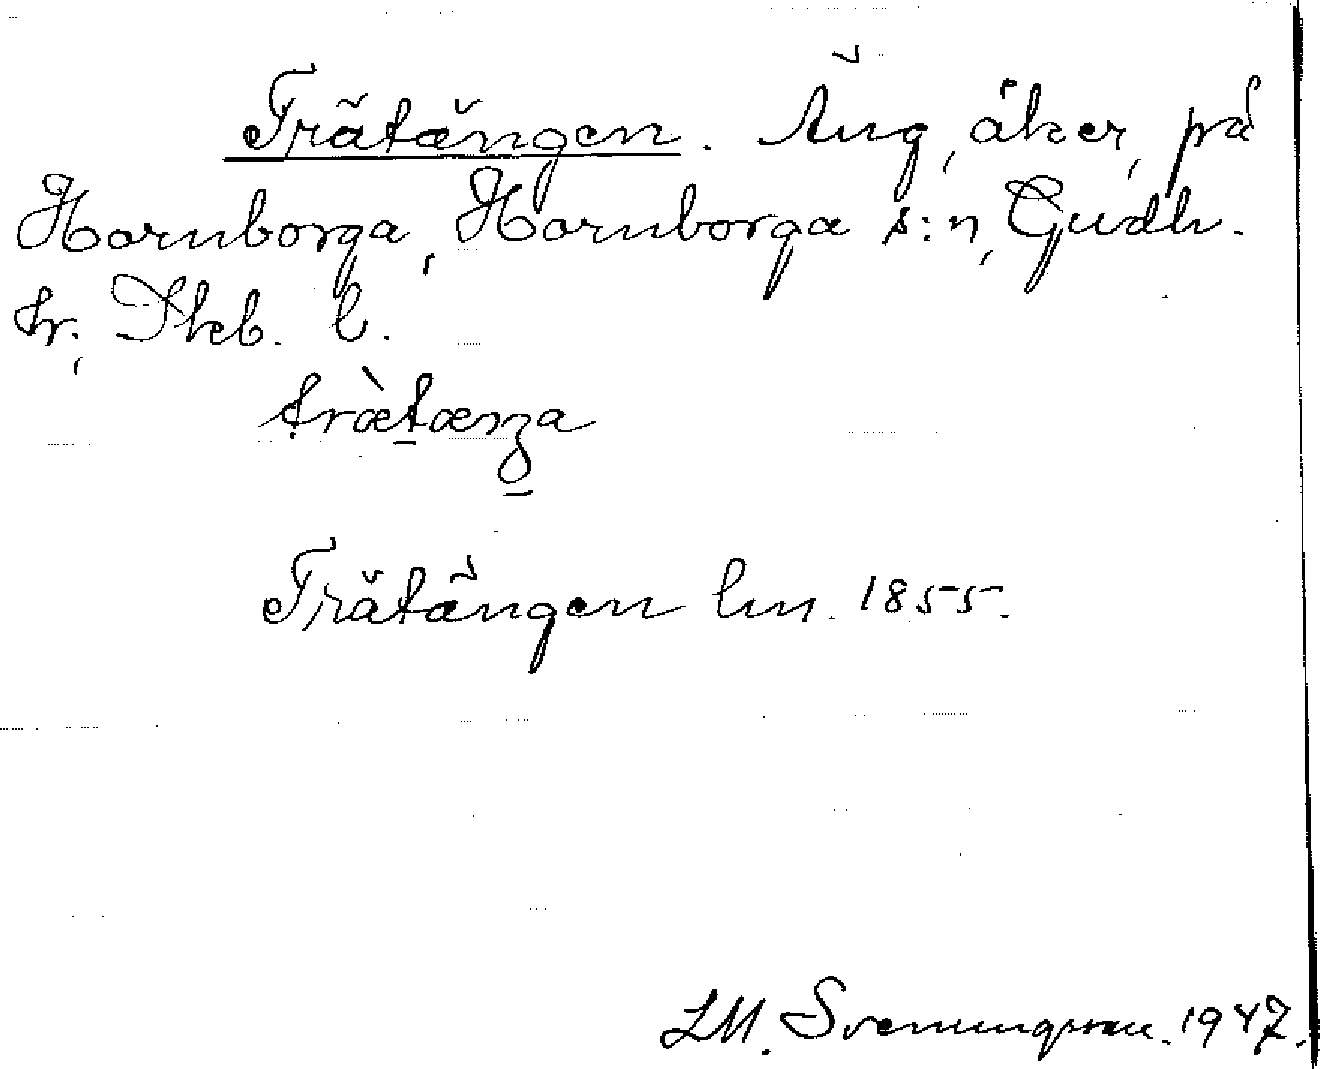 Trätängen. Äng, åker, på
Hornborga, Hornborga s:n, Gudh.
hr., Skb. l.
trætæŋa
Trätängen lm. 1855.
LM. Svenungsson. 1947.